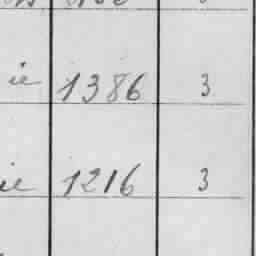 ie 1386 3
ie 1216 3